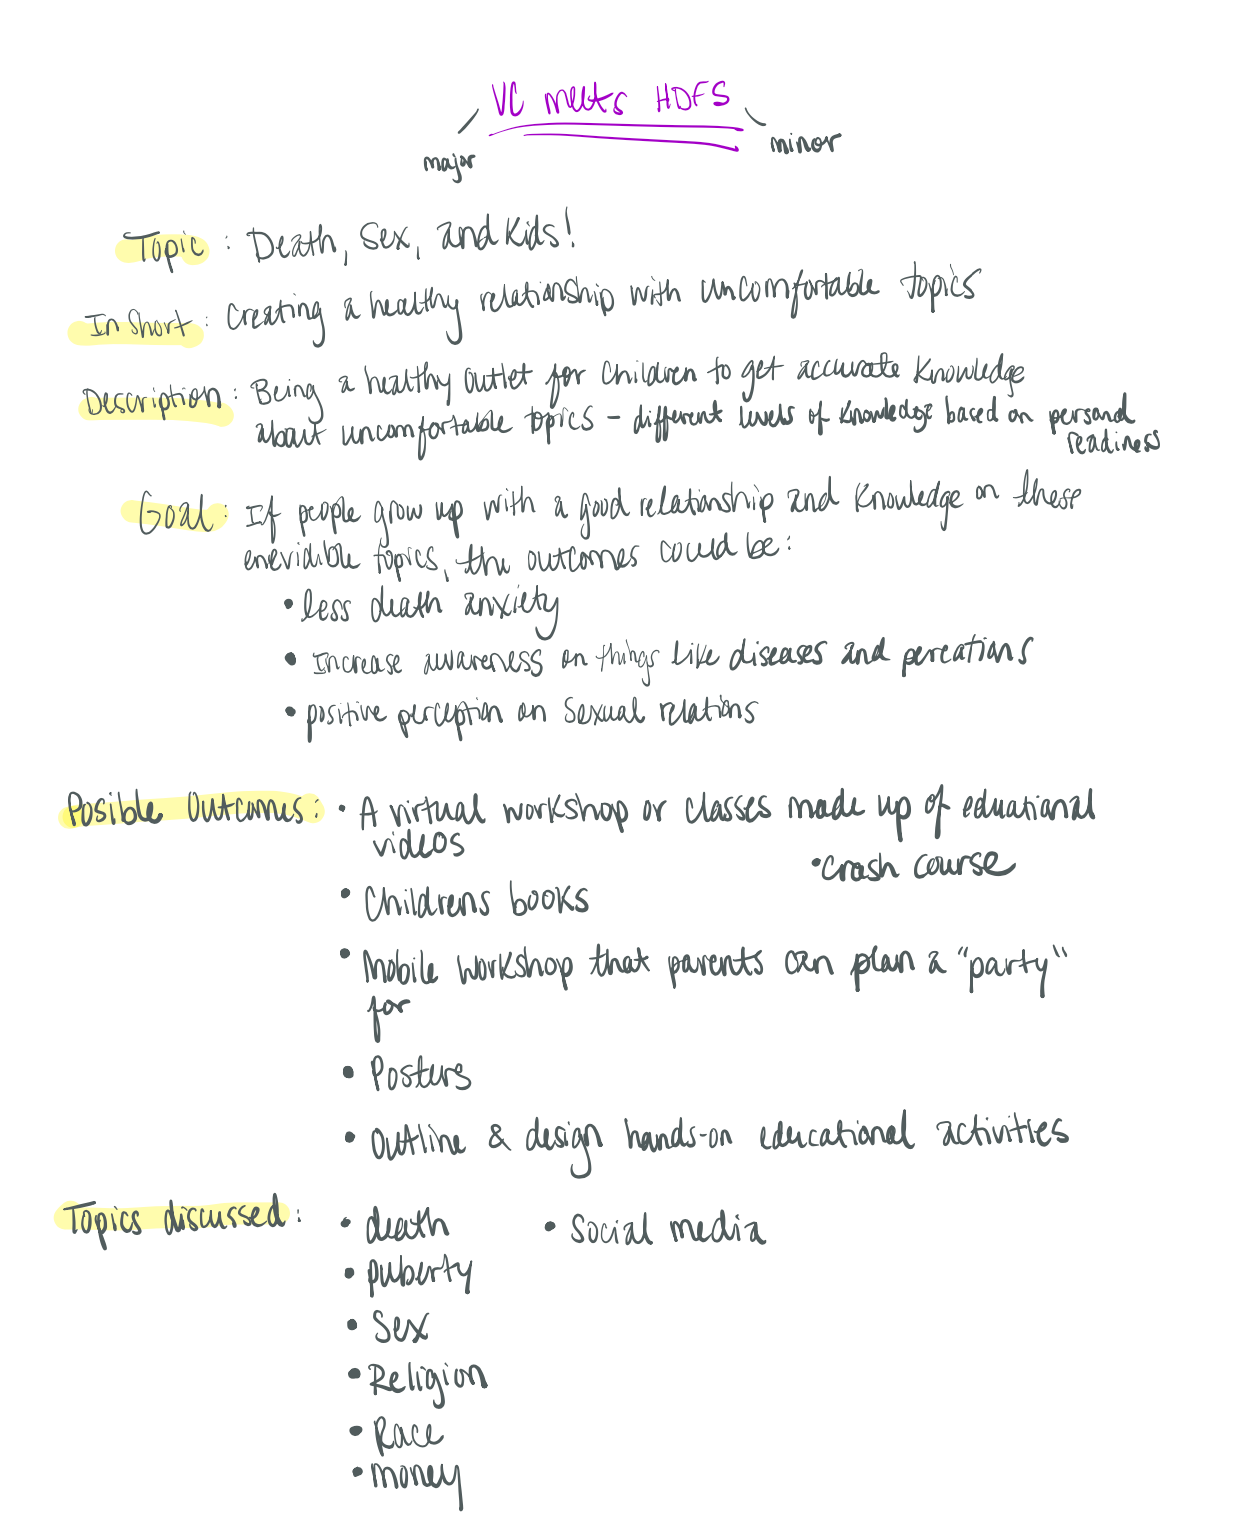 VC meets HDFS
major
minor
Topic : Death, Sex, and Kids!
In Short : Creating a healthy relationship with uncomfortable topics
Description : Being a healthy outlet for children to get accurate knowledge
about uncomfortable topics - different levels of knowledge based on personal
readiness
Goal : If people grow up with a good relationship and knowledge on these
enevidible topics, the outcomes could be:
• less death anxiety
• Increase awareness on things like diseases and percations
• positive perception on sexual relations
Posible Outcomes : • A virtual workshop or classes made up of eduational
videos
• crash course
• Childrens books
• Mobile workshop that parents can plan a "party"
for
• Posters
• Outline & design hands-on educational activities
Topics discussed : • death • Social media
• puberty
• Sex
• Religion
• Race
• money